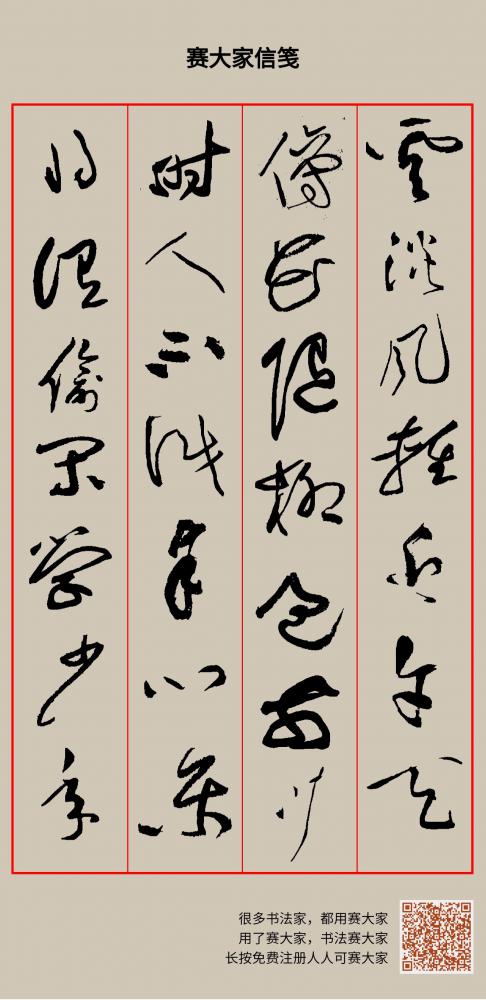 赛大家信笺
雲淡風輕近午天
傍花隨柳過前川
時人不識余心樂
將謂偷閑學少年
很多书法家，都用赛大家
用了赛大家，书法赛大家
长按免费注册人人可赛大家